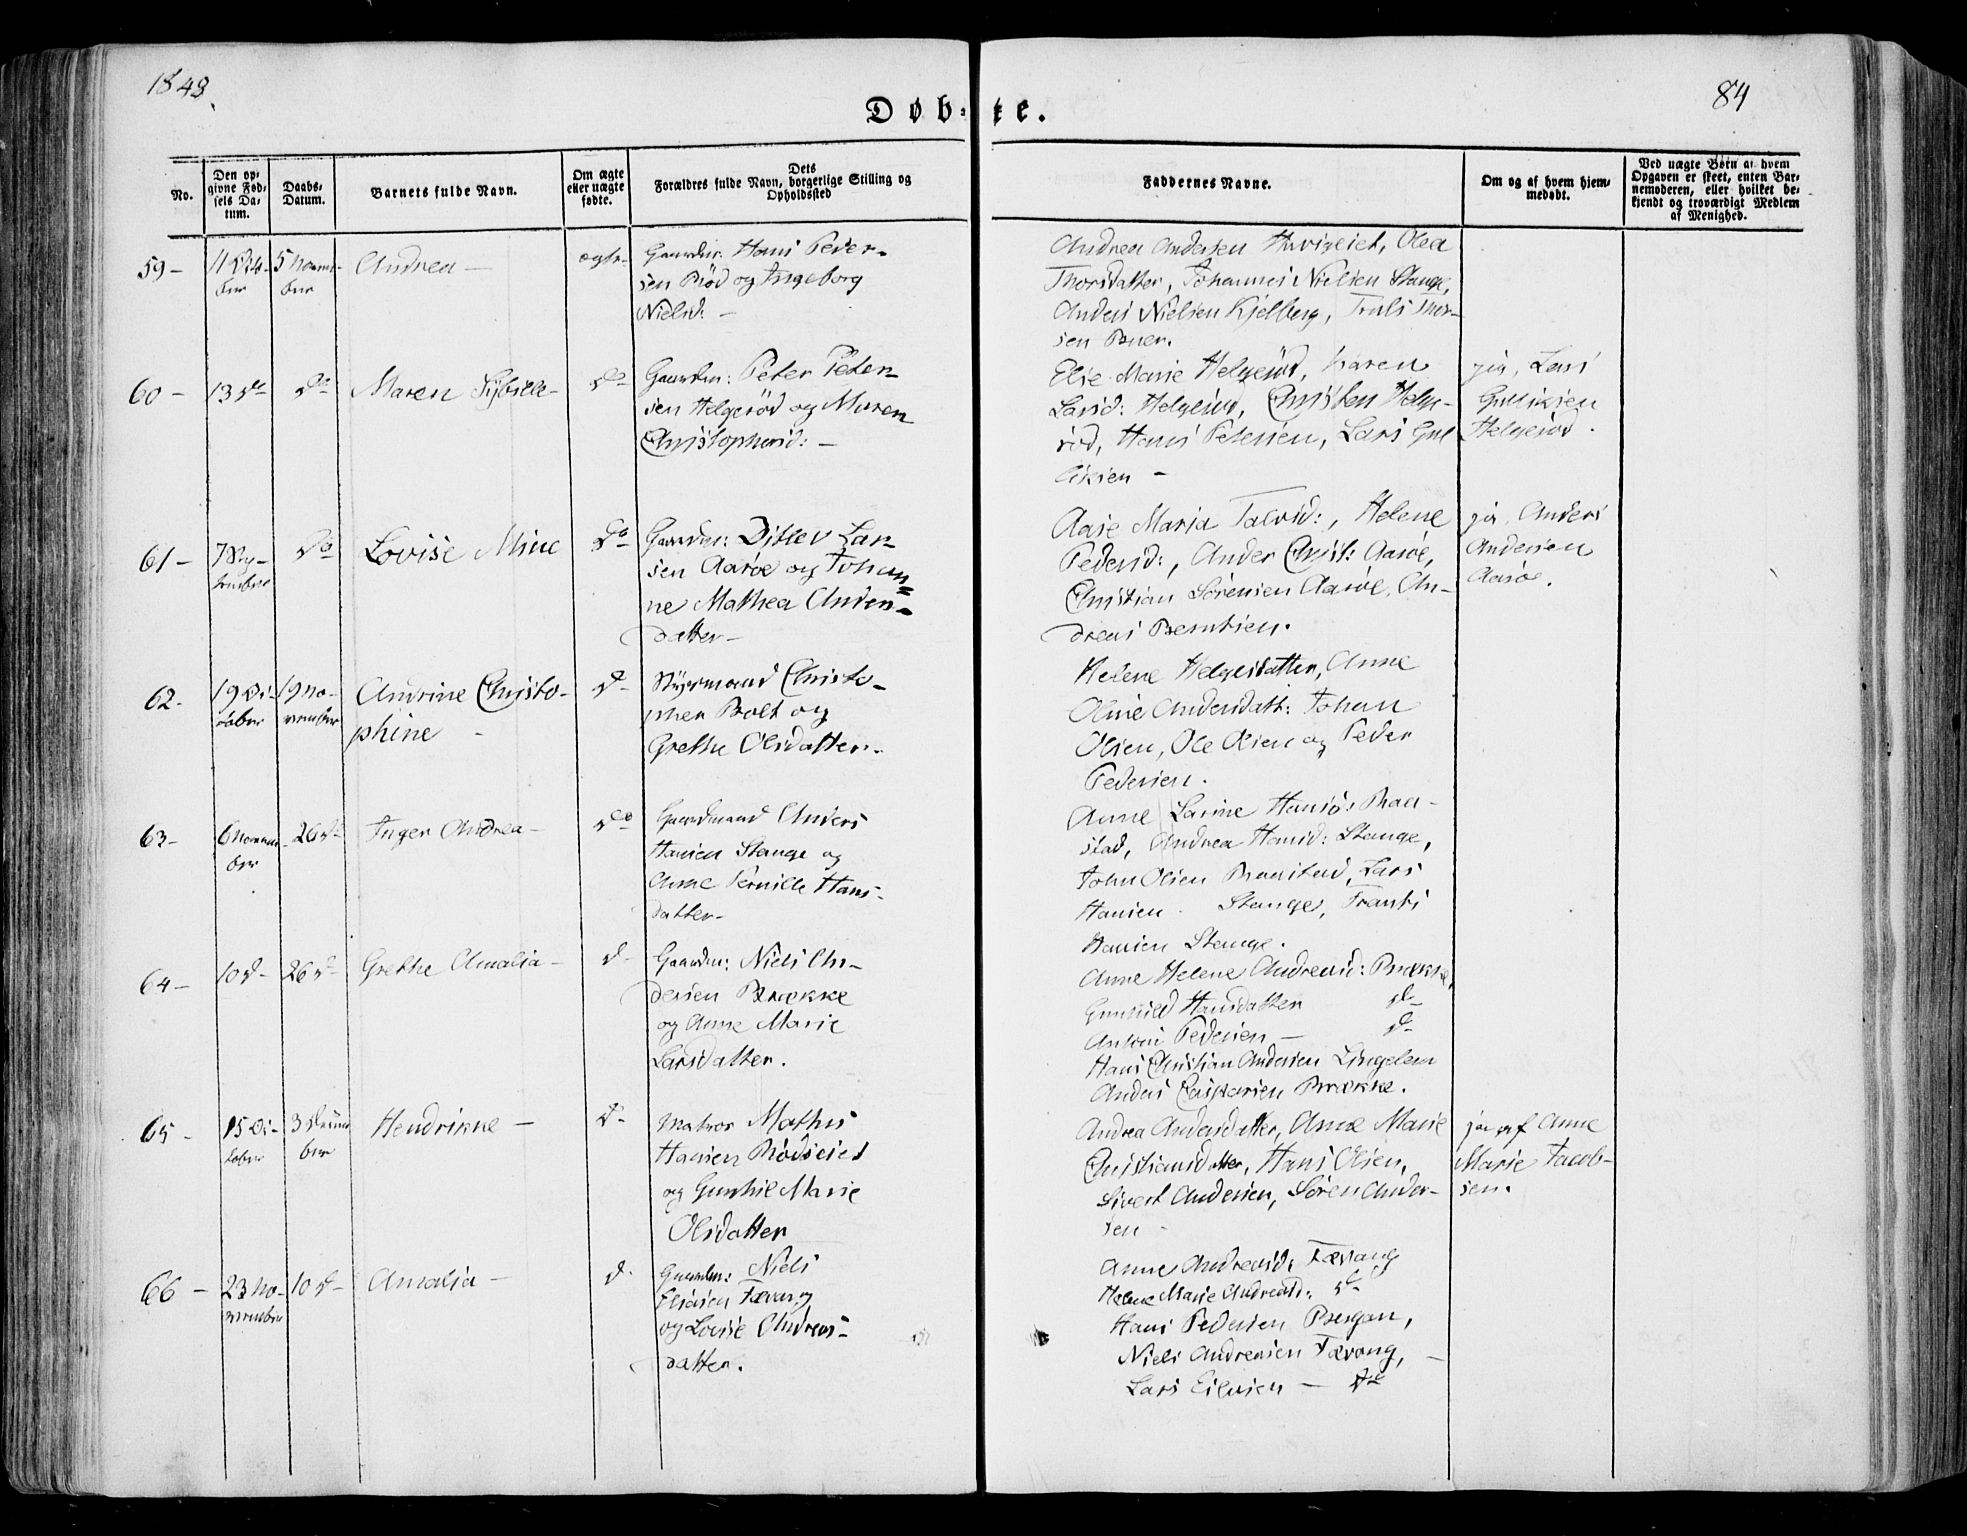 1843
84
Døbte.
No.
Den opgivne Fødsels Datum.
Daabs-Datum.
Barnets fulde Navn.
Om ægte eller uægte fødte.
Dets Forældres fulde Navn, borgerlige Stilling og Opholdssted
Faddernes Navne.
Om og af hvem hjemmedøbt.
Ved uægte Børn at hvem Opgaven er skeet, enten Barnemoderen, eller hvilket bekjendt og troværdigt Medlem af Menighed.
59 -
5 Novem-
ber
Andrea -
Gaardm: Hans Peder-
sen Röd og Ingeborg
Nielsd: -
Andrea Andersen, Olea
Thorsdatter, Johannes Nielsen Stange,
Anders Nielsen Kjelberg, Truls Thor-
sen Buer.
60 -
13 do
do
Maren Sÿbille -
do
Gaardm: Peter Peter-
sen Helgeröd og Maren
Christophersd: -
Elie Marie Helgeröd, Karen
Larsd: Helgeröd, Christen Helge-
röd, Hans Petersen, Lars Gul-
liksen -
ja, Lars
Gulliksen
Helgeröd.
61 -
7 Sep-
tember
do
Lovise Mine
do
Gaardm: Ditlev Lar-
sen Aaröe og Johan-
ne Mathea Anders-
datter -
Aase Maria, Helene
Pedersd:, Ander Christ: Aaröe,
Christian Sörensen Aaröe, An-
dreas Berntsen.
ja, Anders
Andersen
Aaröe.
62.
19 Oc-
tober
19 No-
vember
Andrine Christo-
phine -
d -
Styrmand Christo-
pher Bolt og
Grethe Olsdatter.
Helene Helgesdatter, Anne
Oline Andersdatt: Johan
Olsen, Ole Olsen og Peder
Pedersen.
63 -
6 Novem-
ber
26 d -
Inger Andrea -
do
Gaardmand Anders
Hansen Stange og
Anne Pernille Hans-
datter -
Anne Larine Hansd: Baa-
stad, Andrea Hansd: Stange,
John Olsen Baastad, Lars
Hansen Stange, Frants
Hansen Stange.
64 -
10 d -
26 d -
Grethe Amalia -
d -
Gaardm: Niels An-
dersen Brække
og Anne Marie
Larsdatter.
Anne Helene Andreasd: Brække,
Gunhild Hansdatter do
Anton Pedersen - do
Hans Christian Andersen Lingelem
Anders Caspersen Brække.
65 -
15 Oc-
tober
3 Decem
ber
Hendrikke -
d -
Matros Mathis
Hansen Rödseiet
og Gunhil Marie
Olsdatter
Andrea Andersdatter, Anne Marie
Christiansdatter, Hans Olsen,
Sivert Andersen, Sören Ander-
sen -
ja, af Anne
Marie Jacob-
sen.
66 -
23 No-
vember
10 d -
Amalia -
d.
Gaardm: Niels
Eliasen Færvang
og Lovise Andreas-
datter.
Anne Andreasd: Færvang
Helene Marie Andreasd: do
Hans Pedersen Bergan,
Niels Andreasen Færvang, -
Lars Eilvsen - do